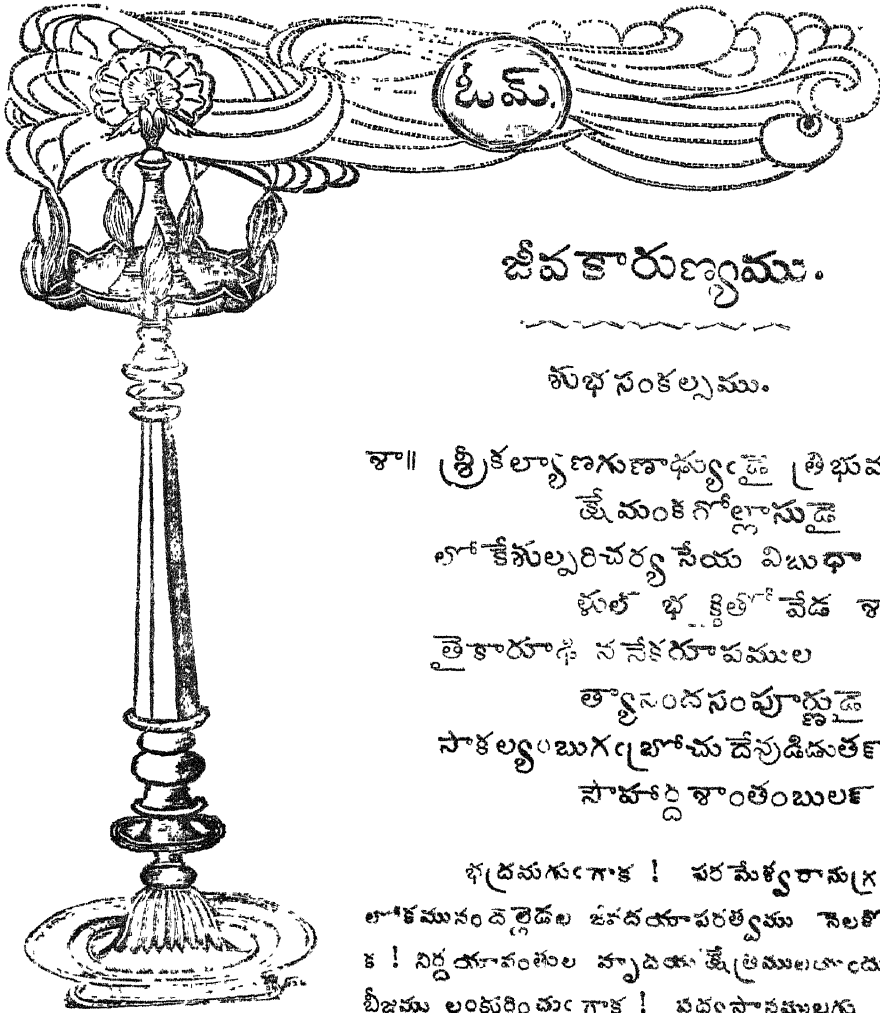 ఓమ్.
జీవకారుణ్యము.
శుభసంకల్పము.
శా॥ శ్రీకల్యాణగుణాఢ్యుఁడై త్రిభువ
క్షేమంక గోల్లాసుడై
లోకేశుల్పరిచర్య సేయ విబుధా
ళుల్ భక్తితో వేడ శా
నేకరూపముల
త్యానందసంపూర్ణుడై
సాకల్యంబుగఁబ్రోచు దేవుడిడుతన్
సౌహార్ద శాంతంబులన్
భద్రమగుఁగాక ! పరమేశ్వరానుగ్ర
లోకమునందెల్లెడల జీవదయాపరత్వము నెలకొ
క ! నిర్దయావంతుల హృదయక్షేత్రములయందు
బీజము లంకురించుఁ గాక !